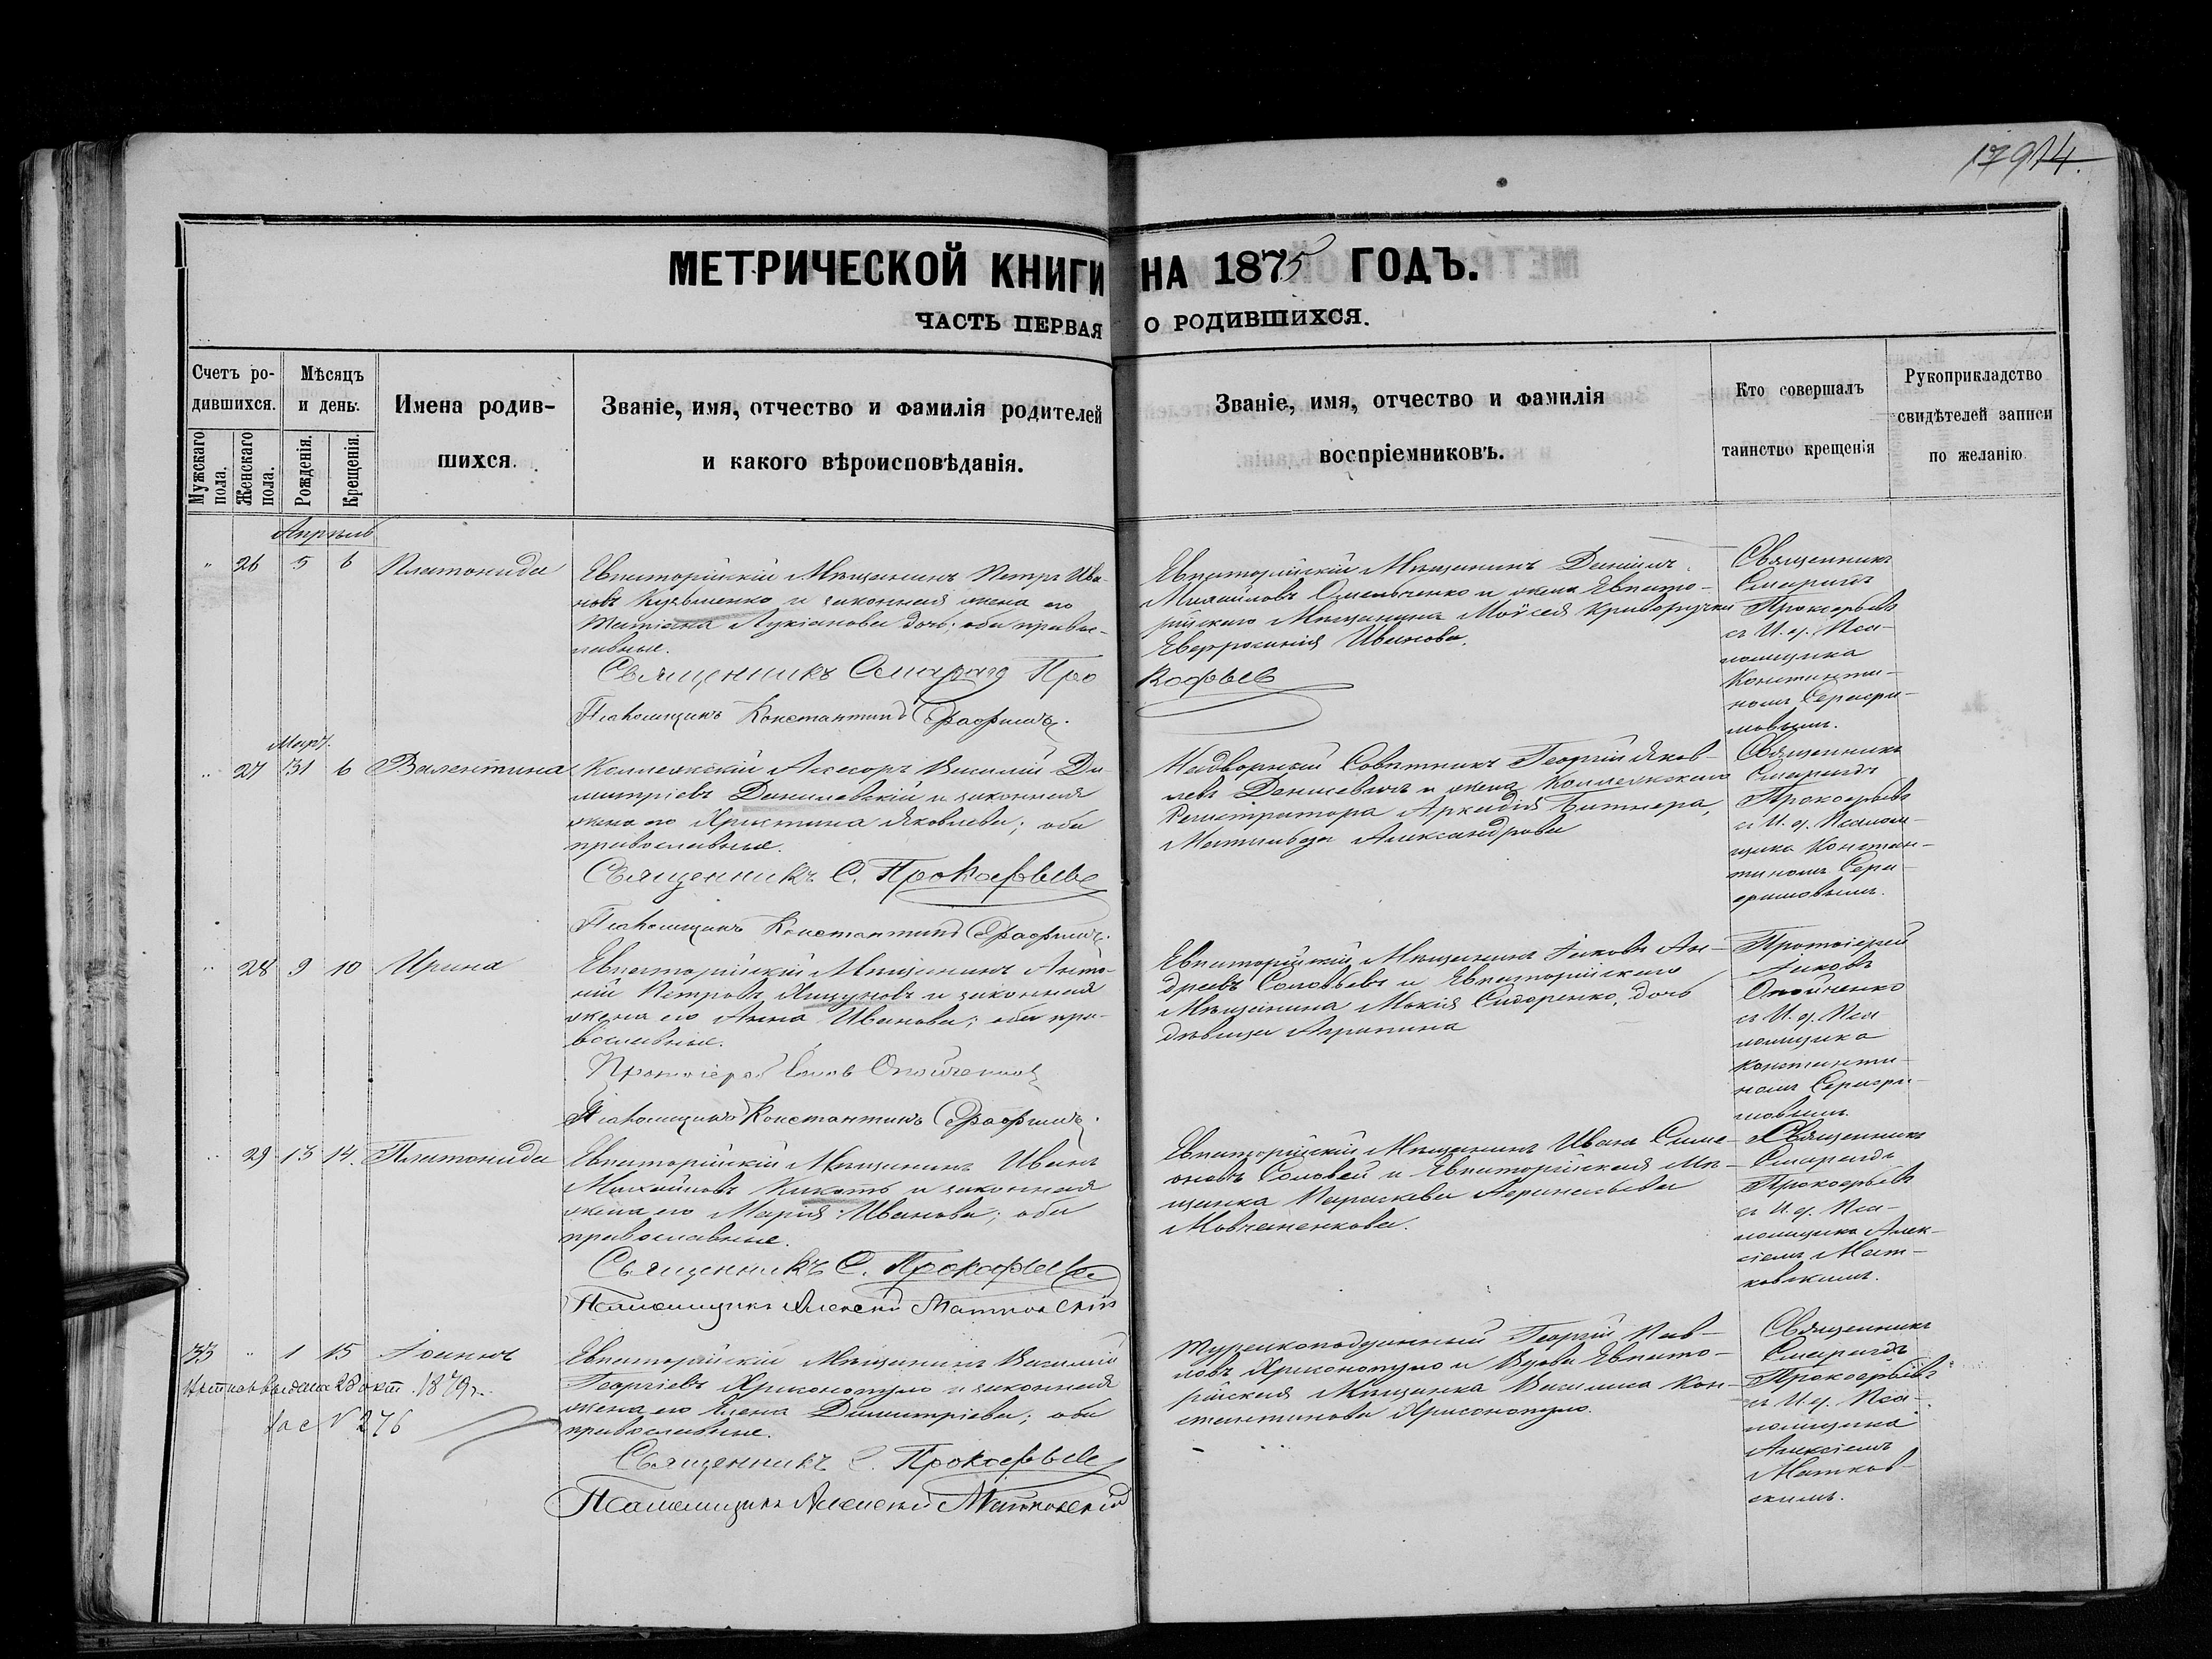 179 14.
МЕТРИЧЕСКОЙ КНИГИ НА 1875 ГОДЪ.
ЧАСТЬ ПЕРВАЯ О РОДИВШИХСЯ.
Счетъ ро-
дившихся.
Мужскаго пола.
Женскаго пола.
Мѣсяцъ
и день.
Рожденія.
Крещенія.
Имена родив-
шихся.
Званіе, имя, отчество и фамилія родителей
и какого вѣроисповѣданія.
Званіе, имя, отчество и фамилія
воспріемниковъ.
Кто совершалъ
таинство крещенія
Рукоприкладство
свидѣтелей записи
по желанію.
Апрѣль
" 26 5 6 Платонида
Евпаторійскій Мѣщанинъ Петръ Ива-
новъ Кузьменко и законная жена его
Татіана Лукіанова дочь; оба правос-
лавные.
Священникъ Смарагд Про
Псаломщикъ Константинъ Серафимовъ.
Евпаторійскій Мѣщанинъ Даніилъ
Михайловъ Омельченко и жена Евпато-
рійскаго Мѣщанина Моѵсея Криворучки
Евфросинія Иванова.
кофьевъ
Священникъ
Смарагдъ
Прокофьевъ
съ И. д. Пса-
ломщика
Константи-
номъ Серафи-
мовымъ.
Март.
" 27 31 6 Валентина
Коллежскій Ассесоръ Василій Ди-
митріевъ Данилевскій и законная
жена его Христина Яковлева; оба
православные.
Священникъ С. Прокофьевъ
Псаломщикъ Константинъ Серафимовъ.
Надворный Совѣтникъ Георгій Яков-
левъ Денисевичъ и жена Коллежскаго
Регистратора Аркадія Битнера,
Матильда Александрова
Священникъ
Смарагдъ
Прокофьевъ
съ И. д. Псалом-
щика Констан-
тиномъ Сера-
фимовымъ.
" 28 9 10 Ирина
Евпаторійскій Мѣщанинъ Анто-
ній Петровъ Ящуновъ и законная
жена его Анна Иванова; оба пра-
вославные.
Протоіерей Іаковъ Опойченко
Псаломщикъ Константинъ Серафимовъ.
Евпаторійскій Мѣщанинъ Іаковъ Ан-
дреевъ Соловьевъ и Евпаторійскаго
Мѣщанина Мокія Сидоренко, дочь
дѣвица Агрипина
Протоіерей
Іаковъ
Опойченко
съ И. д. Пса
ломщика
Константи-
номъ Серафи-
мовымъ.
" 29 13 14. Платонида
Евпаторійскій Мѣщанинъ Иванъ
Михайловъ Кикоть и законная
жена его Марія Иванова; оба
православные.
Священникъ С. Прокофьевъ
Псаломщикъ Алексей Матковскій
Евпаторійскій Мѣщанинъ Иванъ Симе-
оновъ Соловей и Евпаторійская Мѣ-
щанка Параскева
Мовчаненкова.
Священникъ
Смарагдъ
Прокофьевъ
съ И. д. Пса-
ломщика Алек-
сіемъ Мат-
ковскимъ.
33 " 1 15 Іоаннъ
выдана 28 окт 1879 г.
за с № 276
Евпаторійскій Мѣщанинъ Василій
Георгіевъ Хрисонопуло и законная
жена его Елена Димитріева; оба
православные.
Священникъ С. Прокофьевъ
Псаломщикъ Алексей Матковскій
Турецкоподданный Георгій Пав-
ловъ Хрисонопуло и Вдова Евпато-
рійская Мѣщанка Василиса Кон-
стантинова Хрисонопуло.
Священникъ
Смарагдъ
Прокофьевъ
съ И. д. Пса-
ломщика
Алексіемъ
Матков-
скимъ.